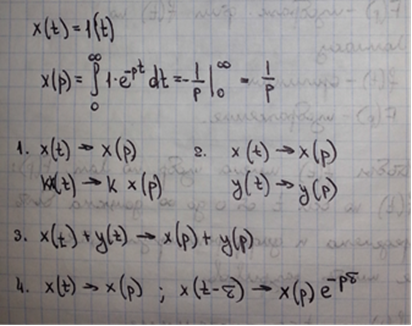 x(t) = 1(t)
x(p) = ∫₀^∞ 1·e^{-pt} dt = -1/p |₀^∞ = 1/p
1. x(t) → x(p) 2. x(t) → x(p)
kx(t) → k x(p) y(t) → y(p)
3. x(t) + y(t) → x(p) + y(p)
4. x(t) → x(p) ; x(t-τ) → x(p) e^{-pτ}